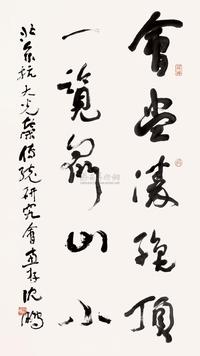 會當凌絕頂
一覽眾山小
北京抗大光榮傳統研究會惠存 沈鵬